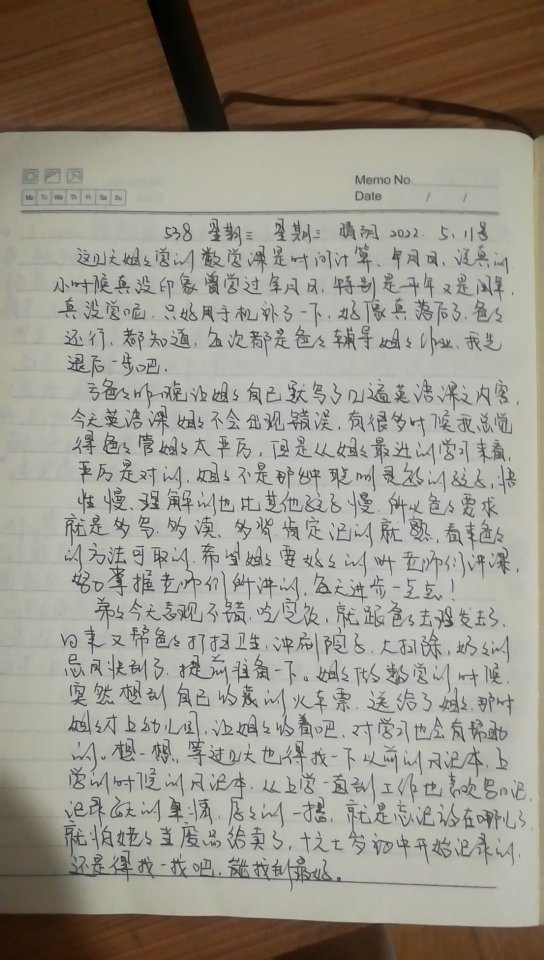 Memo No
Mo Tu We Th Fr Sa Su
Date / /
538 星期三 星期三 晴朗 2022. 5. 11号
这几天姐姐学的数学课是时间计算. 年月日, 说真的
小时候真没印象曾学过年月日, 特别是平年又是闰年,
真没学呢. 只好用手机补了一下, 好像真落后了. 爸爸
还行, 都知道, 每次都是爸爸辅导姐姐作业, 我先
退后一步吧.
爸爸昨晚让姐姐自己默写了几遍英语课文内容,
今天英语课姐姐不会出现错误, 有很多时候我总觉
得爸爸管姐姐太严厉, 但是从姐姐最近的学习来看,
严厉是对的, 姐姐不是那种聪明灵的孩子, 悟
性慢, 理解的也比其他孩子慢. 所以爸爸要求
就是多写. 多读. 多背. 肯定记的就熟, 看来爸爸
的方法可取的, 希望姐姐要好好的听老师们讲课,
好好掌握老师们所讲的, 每天进步一点点!
弟弟今天表现不错, 吃完饭, 就跟爸爸去理发去了,
回来又帮爸爸打扫卫生, 冲刷院子. 大扫除, 奶奶的
忌日快到了, 提前准备一下。姐姐做数学的时候
突然想到自己的火车票, 送给了姐姐, 那时
姐姐才上幼儿园, 让姐姐看吧, 对学习也会有帮助
的. 想一想, 等过几天也得找一下以前的日记本, 上
学的时候的日记本, 从上学一直到工作也喜欢写日记,
记录每天的事情, 厚厚的一摞, 就是忘记放在哪儿了,
就怕娃娃当废品给卖了, 十六七岁初中开始记录的,
还是得找一找吧, 能找到最好。